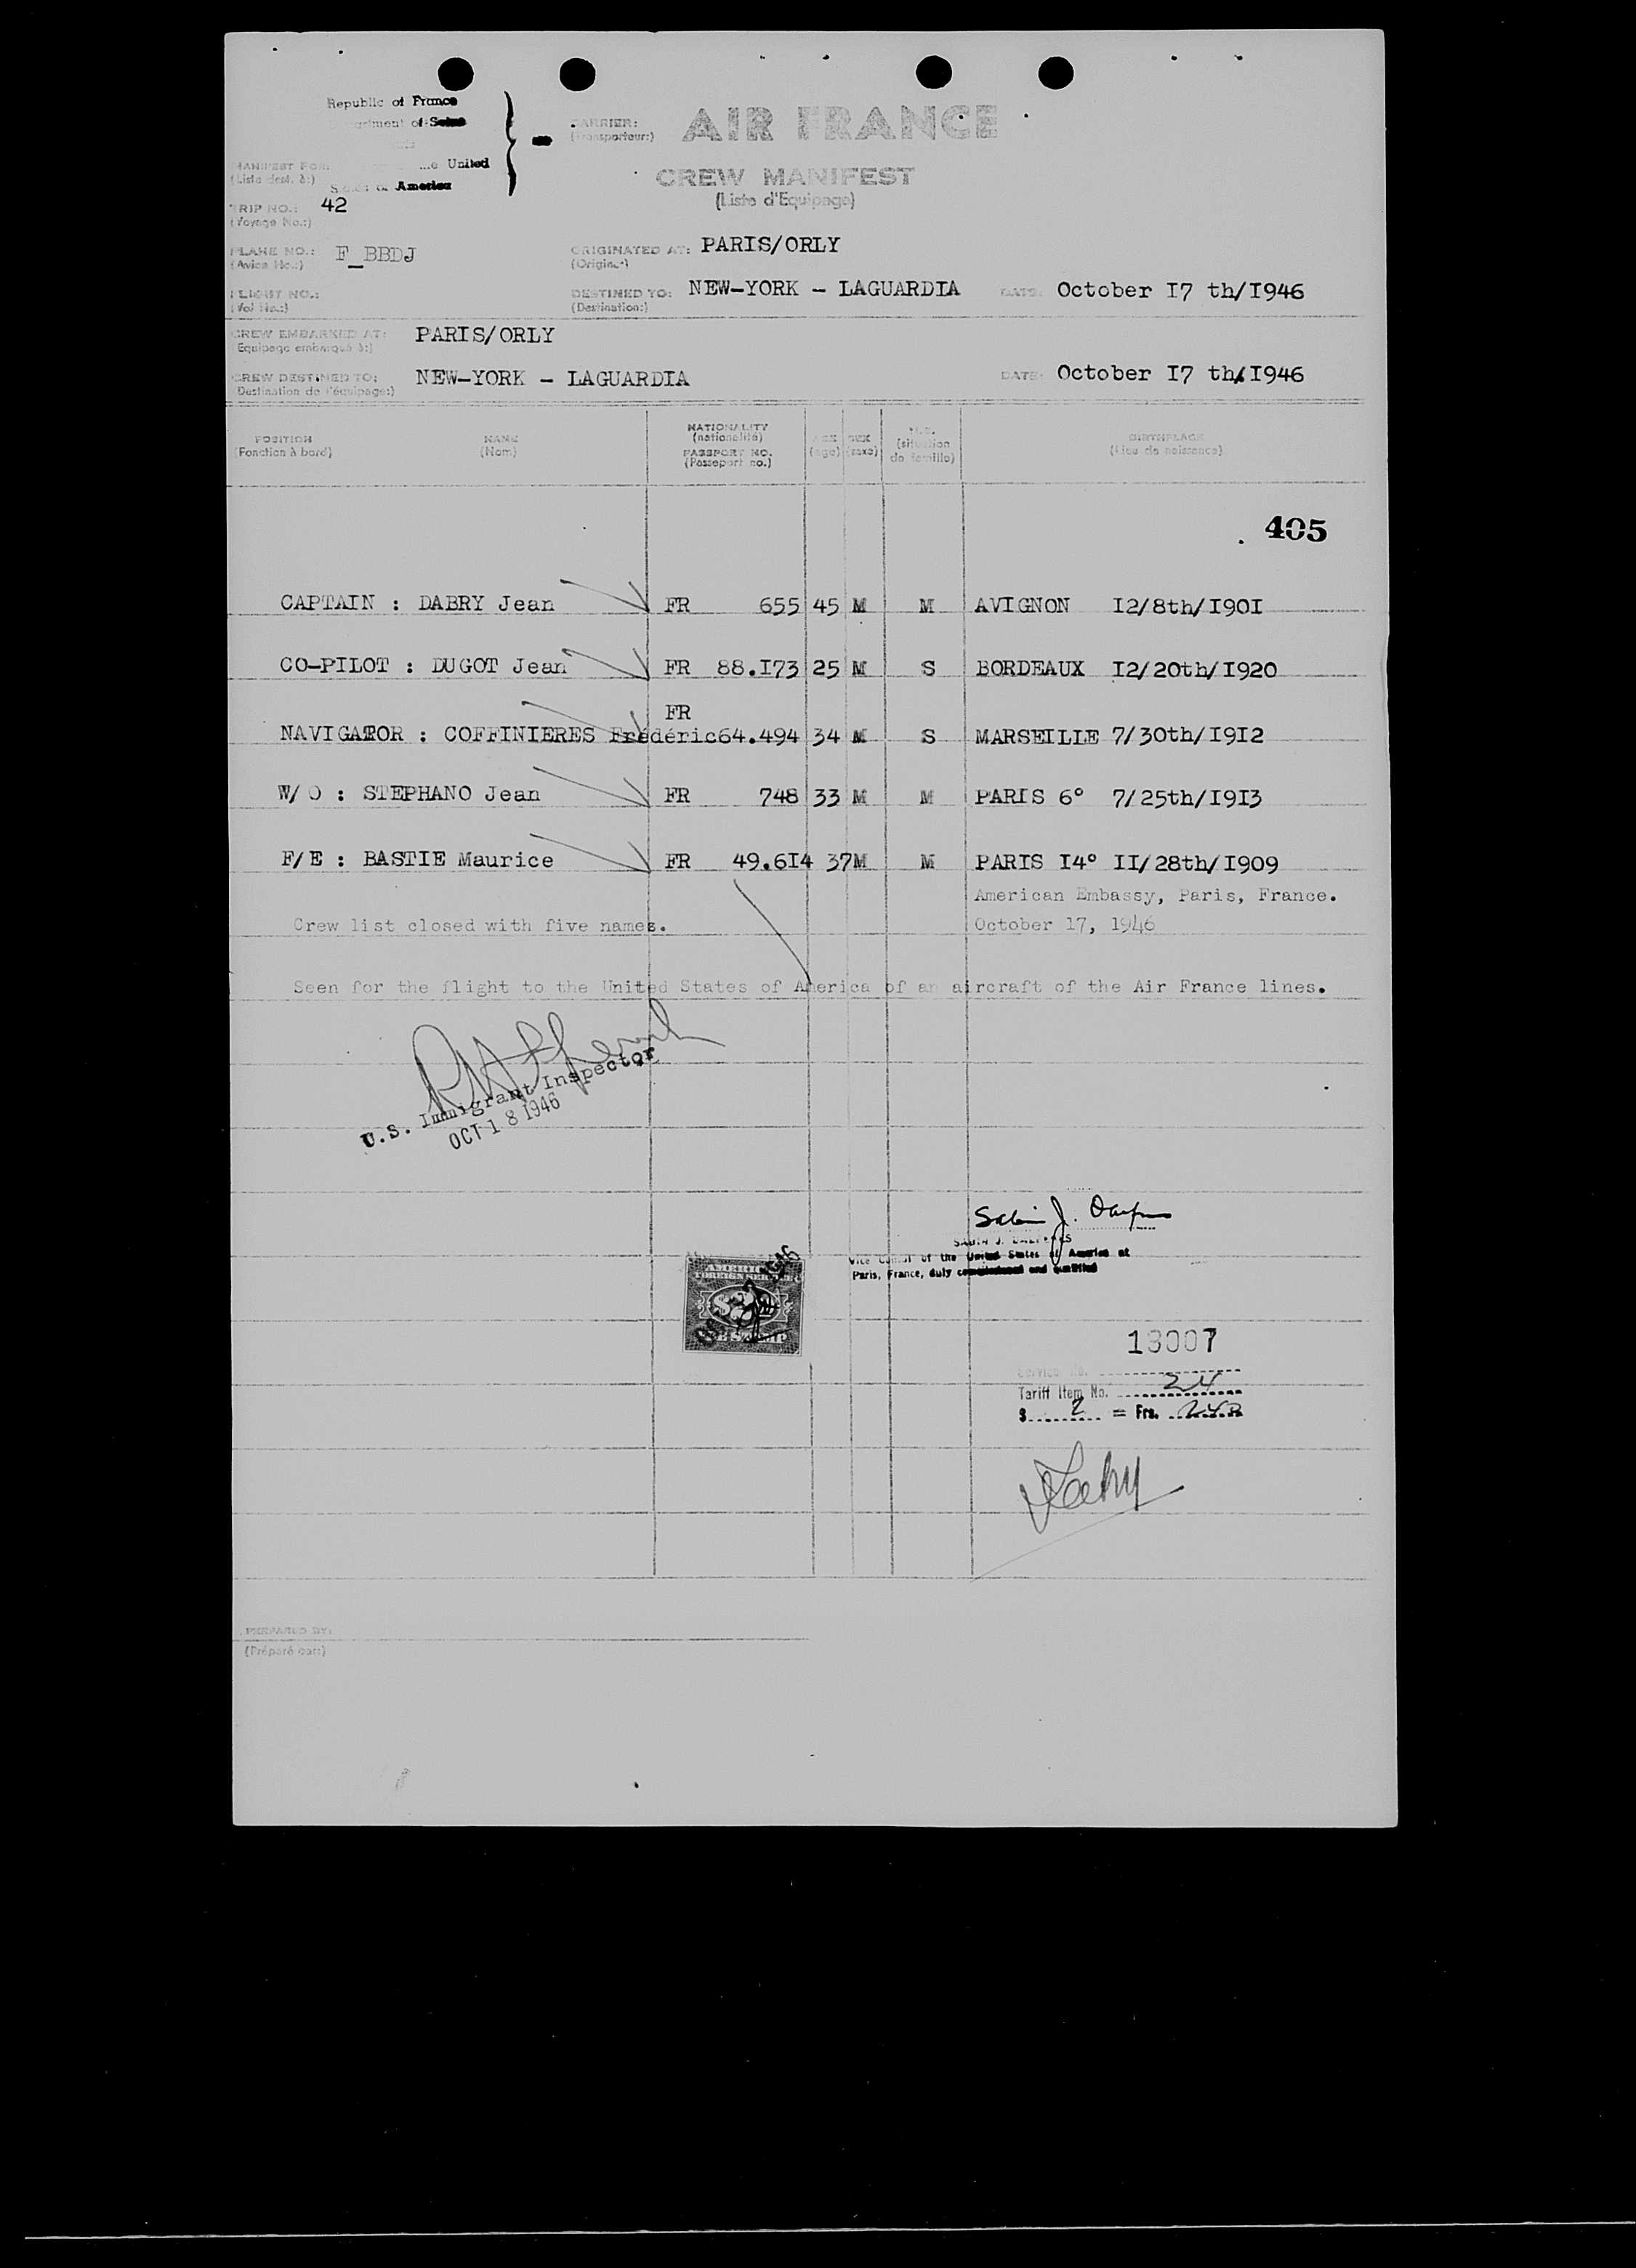 Republic of France
of Seine
CARRIER:
(Transporteur:)
AIR FRANCE
MANIFEST FOR:
(Liste dest. à:)
United
America
CREW MANIFEST
(Liste d'Equipage)
TRIP NO.: 42
(Voyage No.:)
PLANE NO.: F_BBDJ
(Avion No.:)
ORIGINATED AT: PARIS/ORLY
(Origine:)
FLIGHT NO.:
(Vol No.:)
DESTINED TO: NEW-YORK - LAGUARDIA
(Destination:)
DATE: October I7 th/I946
CREW EMBARKED AT: PARIS/ORLY
(Equipage embarqué à:)
CREW DESTINED TO: NEW-YORK - LAGUARDIA
(Destination de l'équipage:)
DATE: October I7 th/I946
POSITION
(Fonction à bord)
NAME
(Nom)
NATIONALITY
(nationalité)
PASSPORT NO.
(Passeport no.)
AGE
(age)
SEX
(sexe)
(situation
de famille)
BIRTHPLACE
(Lieu de naissance)
405
CAPTAIN : DABRY Jean FR 655 45 M M AVIGNON I2/8th/I90I
CO-PILOT : DUGOT Jean FR 88.I73 25 M S BORDEAUX I2/20th/I920
FR
NAVIGATOR : COFFINIERES Frédéric 64.494 34 M S MARSEILLE 7/30th/I9I2
W/O : STEPHANO Jean FR 748 33 M M PARIS 6° 7/25th/I9I3
F/E : BASTIE Maurice FR 49.6I4 37 M M PARIS I4° II/28th/I909
American Embassy, Paris, France.
Crew list closed with five names.
October 17, 1946
Seen for the flight to the United States of America of an aircraft of the Air France lines.
U.S. Immigrant Inspector
OCT 18 1946
Vice Consul of the United States of America at
Paris, France, duly commissioned and qualified
AMERICAN
FOREIGN SERVICE
$2
FEE STAMP
18007
Service No.
Tariff Item No. 24
$ 2 = Frs. 240
PREPARED BY:
(Préparé par:)